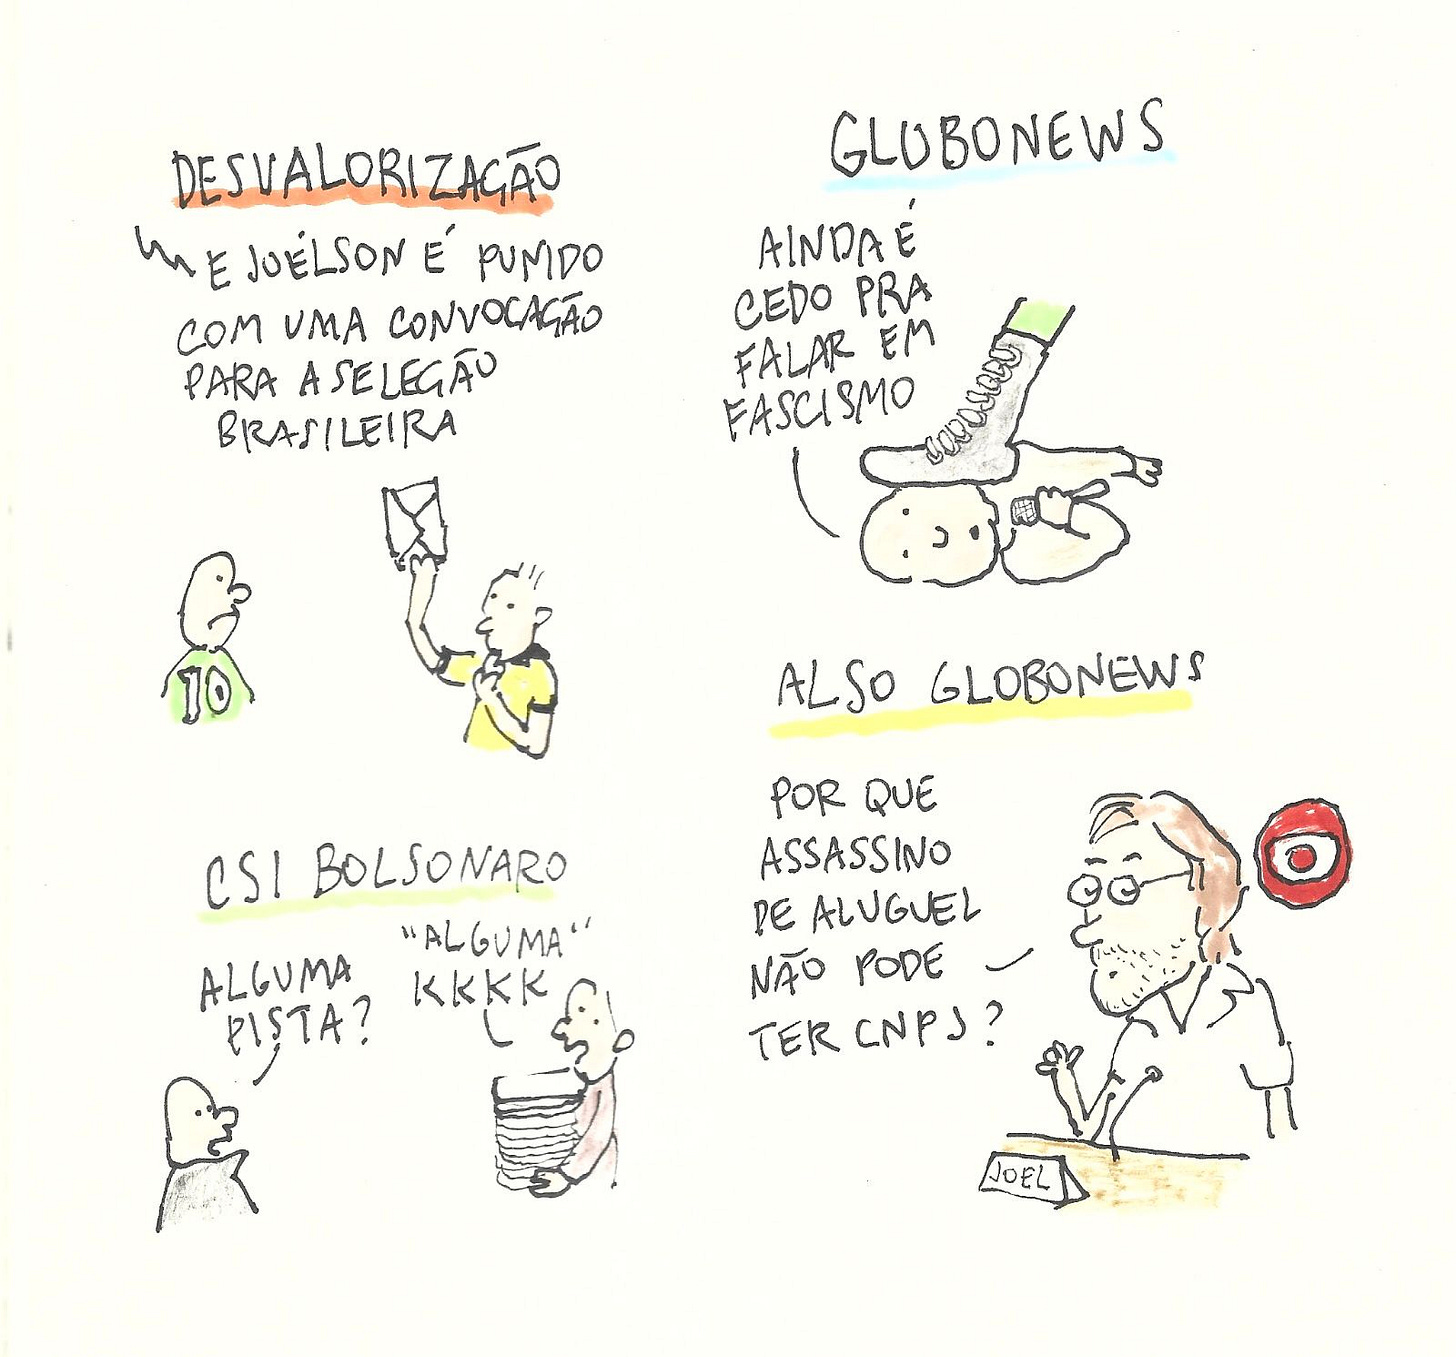 DESVALORIZAÇÃO
E JOÉLSON É PUNIDO
COM UMA CONVOCAÇÃO
PARA A SELEÇÃO
BRASILEIRA
10
CSI BOLSONARO
ALGUMA
PISTA?
"ALGUMA"
KKKK
GLOBONEWS
AINDA É
CEDO PRA
FALAR EM
FASCISMO
ALSO GLOBONEWS
POR QUE
ASSASSINO
DE ALUGUEL
NÃO PODE
TER CNPJ?
JOEL